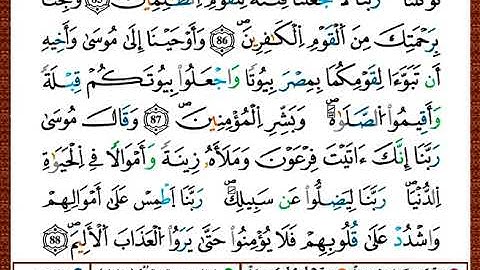 تَوَكَّلْنَا رَبَّنَا لَا تَجْعَلْنَا فِتْنَةً لِّلْقَوْمِ اِ۬لظَّٰلِمِينَ 85 وَنَجِّنَا
بِرَحْمَتِكَ مِنَ اَ۬لْقَوْمِ اِ۬لْكَٰفِرِينَ 86 وَأَوْحَيْنَا إِلَىٰ مُوسَىٰ وَأَخِيهِ
أَن تَبَوَّءَا لِقَوْمِكُمَا بِمِصْرَ بِيُوتًا وَاجْعَلُوا بِيُوتَكُمْ قِبْلَةً
وَأَقِيمُوا اُ۬لصَّلَوٰةَ وَبَشِّرِ اِ۬لْمُؤْمِنِينَ 87 وَقَالَ مُوسَىٰ
رَبَّنَا إِنَّكَ ءَاتَيْتَ فِرْعَوْنَ وَمَلَأَهُۥ زِينَةً وَأَمْوَالًا فِي اِ۬لْحَيَوٰةِ
اِ۬لدُّنْيَا رَبَّنَا لِيَضِلُّوا عَن سَبِيلِكَ رَبَّنَا اَ۪طْمِسْ عَلَىٰ أَمْوَالِهِمْ
وَاشْدُدْ عَلَىٰ قُلُوبِهِمْ فَلَا يُؤْمِنُوا حَتَّىٰ يَرَوُا اُ۬لْعَذَابَ اَ۬لْأَلِيمَ 88